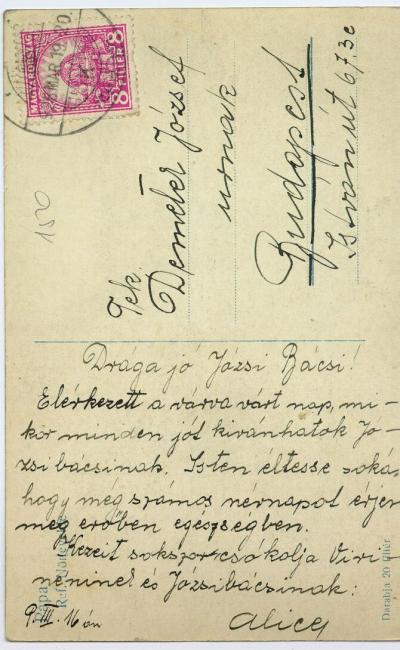 MAGYARORSZÁG
8 FILLÉR 8
150
Tek.
Demeter József
urnak
Budapest
István út 67. 3e
Drága jó Józsi Bácsi!
Elérkezett a várva várt nap, mi-
kor minden jót kivánhatok Jó-
zsibácsinak. Isten éltesse soká,
hogy még számos névnapot érjen
meg erőben egészségben.
Kezeit sokszor csókolja Vivi-
néninel és Józsibácsinak:
Alice
Pápa
Darabja 20 fillér